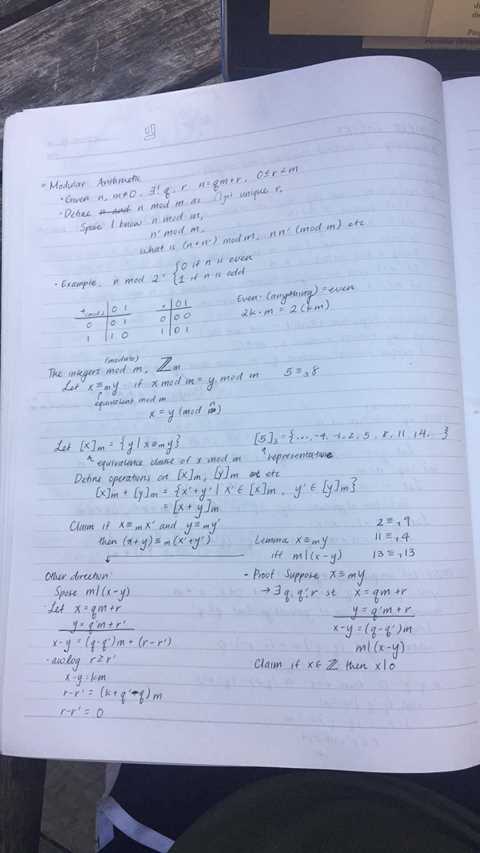 • Modular Arithmetic
• Given n, m≠0, ∃! q, r n=qm+r, 0≤r<m
• Define n mod m as unique r.
Spose I know n mod m,
n' mod m,
what is (n+n') mod m, nn' (mod m) etc
• Example, n mod 2 = { 0 if n is even
1 if n is odd
+ (mod 2) | 0 1
0 | 0 1
1 | 1 0
× | 0 1
0 | 0 0
1 | 0 1
Even · (anything) = even
2k·m = 2(km)
(modulo)
The integers mod m, ℤm
Let x ≡m y if x mod m = y mod m 5 ≡3 8
equivalent mod m
x = y (mod m)
Let [x]m = {y | x ≡m y}
equivalence classe of x mod m
[5]3 = {..., -4, -1, 2, 5, 8, 11, 14, ... }
representative
Define operations on [x]m, [y]m etc
[x]m + [y]m = {x'+y' | x' ∈ [x]m, y' ∈ [y]m}
= [x + y]m
Claim if x ≡m x' and y ≡m y'
then (x+y) ≡m (x'+y')
Lemma x ≡m y
iff m|(x-y)
2 ≡7 9
11 ≡7 4
13 ≡ 13
Other direction
Spose m|(x-y)
• Let x = qm+r
y = q'm+r'
x-y = (q-q')m + (r-r')
• wolog r ≥ r'
x-y = km
r-r' = (k+q'-q)m
r-r' = 0
- Proof Suppose x ≡m y
→ ∃ q, q', r st x = qm+r
y = q'm+r
x-y = (q-q')m
m|(x-y)
Claim if x ∈ ℤ then x|0